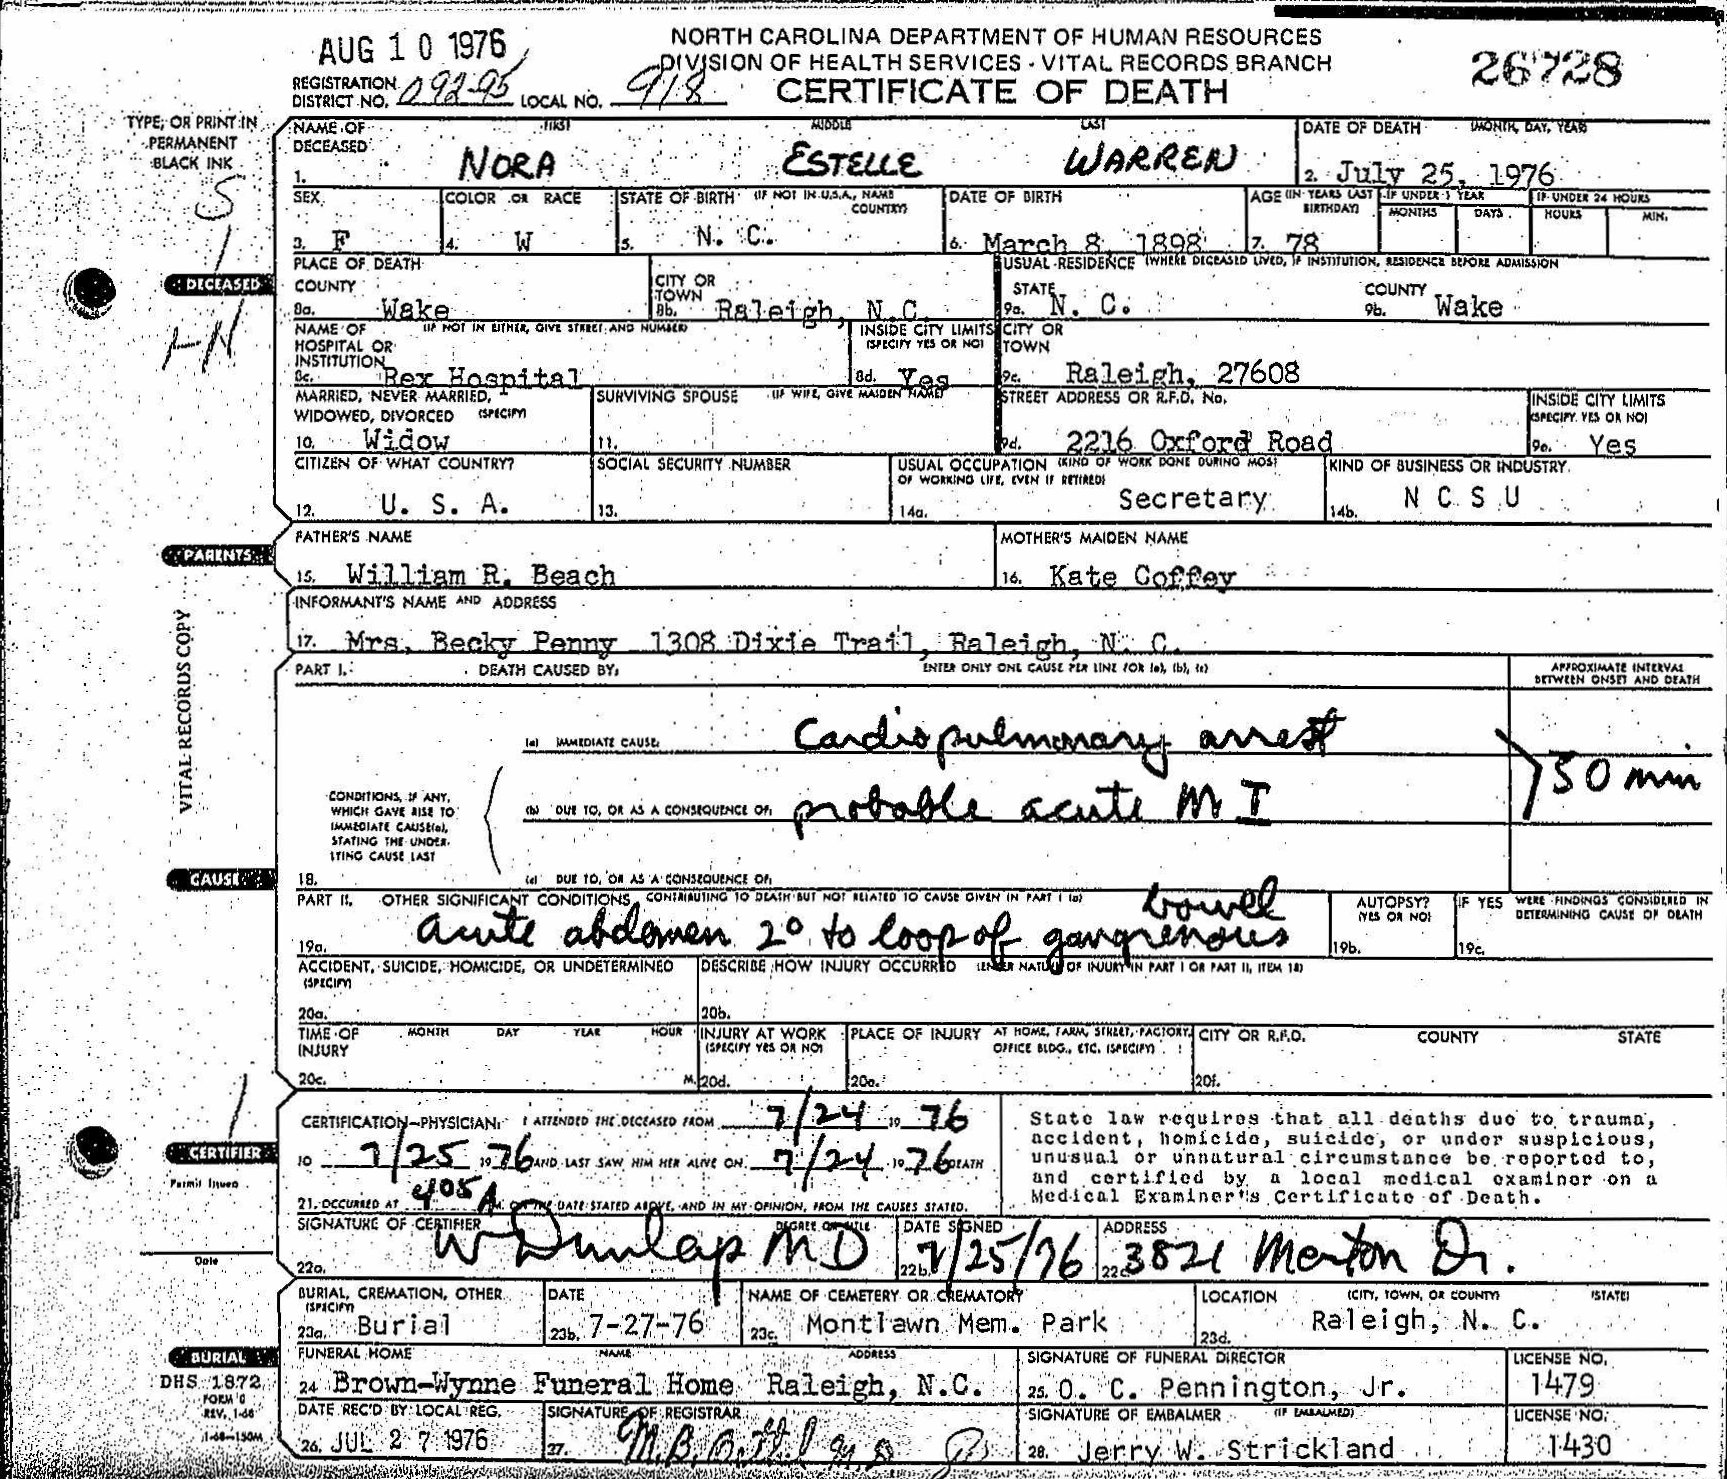 AUG 10 1976
NORTH CAROLINA DEPARTMENT OF HUMAN RESOURCES
DIVISION OF HEALTH SERVICES - VITAL RECORDS BRANCH
CERTIFICATE OF DEATH
26728
REGISTRATION DISTRICT NO. 092-95 LOCAL NO. 918
TYPE, OR PRINT IN
PERMANENT
BLACK INK
NAME OF DECEASED FIRST MIDDLE LAST
1. NORA ESTELLE WARREN
DATE OF DEATH (MONTH, DAY, YEAR)
2. July 25, 1976
SEX
3. F
COLOR OR RACE
4. W
STATE OF BIRTH (IF NOT IN U.S.A., NAME COUNTRY)
5. N. C.
DATE OF BIRTH
6. March 8, 1898
AGE (IN YEARS LAST BIRTHDAY)
7. 78
IF UNDER 1 YEAR
MONTHS DAYS
IF UNDER 24 HOURS
HOURS MIN.
DECEASED
PLACE OF DEATH
COUNTY
8a. Wake
CITY OR TOWN
8b. Raleigh, N.C.
USUAL RESIDENCE (WHERE DECEASED LIVED, IF INSTITUTION, RESIDENCE BEFORE ADMISSION
STATE
9a. N. C.
COUNTY
9b. Wake
NAME OF HOSPITAL OR INSTITUTION (IF NOT IN EITHER, GIVE STREET AND NUMBER)
8c. Rex Hospital
INSIDE CITY LIMITS (SPECIFY YES OR NO)
8d. Yes
CITY OR TOWN
9c. Raleigh, 27608
MARRIED, NEVER MARRIED, WIDOWED, DIVORCED (SPECIFY)
10. Widow
SURVIVING SPOUSE (IF WIFE, GIVE MAIDEN NAME)
11.
STREET ADDRESS OR R.F.D. No.
9d. 2216 Oxford Road
INSIDE CITY LIMITS (SPECIFY YES OR NO)
9e. Yes
CITIZEN OF WHAT COUNTRY?
12. U. S. A.
SOCIAL SECURITY NUMBER
13.
USUAL OCCUPATION (KIND OF WORK DONE DURING MOST OF WORKING LIFE, EVEN IF RETIRED)
14a. Secretary
KIND OF BUSINESS OR INDUSTRY
14b. N C S U
PARENTS
FATHER'S NAME
15. William R. Beach
MOTHER'S MAIDEN NAME
16. Kate Coffey
INFORMANT'S NAME AND ADDRESS
17. Mrs. Becky Penny 1308 Dixie Trail, Raleigh, N. C.
VITAL RECORDS COPY
PART I. DEATH CAUSED BY: ENTER ONLY ONE CAUSE PER LINE FOR (a), (b), (c)
APPROXIMATE INTERVAL BETWEEN ONSET AND DEATH
(a) IMMEDIATE CAUSE: Cardiopulmonary arrest
CONDITIONS, IF ANY,
WHICH GAVE RISE TO
IMMEDIATE CAUSE(a),
STATING THE UNDER-
LYING CAUSE LAST
(b) DUE TO, OR AS A CONSEQUENCE OF: probable acute M I
min
CAUSE
18. (c) DUE TO, OR AS A CONSEQUENCE OF:
PART II. OTHER SIGNIFICANT CONDITIONS CONTRIBUTING TO DEATH BUT NOT RELATED TO CAUSE GIVEN IN PART I (a)
19a. acute abdomen 2° to loop of gangrenous bowel
AUTOPSY? (YES OR NO)
19b.
IF YES WERE FINDINGS CONSIDERED IN DETERMINING CAUSE OF DEATH
19c.
ACCIDENT, SUICIDE, HOMICIDE, OR UNDETERMINED (SPECIFY)
20a.
DESCRIBE HOW INJURY OCCURRED (ENTER NATURE OF INJURY IN PART I OR PART II, ITEM 18)
20b.
TIME OF INJURY MONTH DAY YEAR HOUR
20c. M.
INJURY AT WORK (SPECIFY YES OR NO)
20d.
PLACE OF INJURY AT HOME, FARM, STREET, FACTORY, OFFICE BLDG., ETC. (SPECIFY)
20e.
CITY OR R.F.D. COUNTY STATE
20f.
CERTIFIER
CERTIFICATION-PHYSICIAN: I ATTENDED THE DECEASED FROM 7/24 19 76
TO 7/25 1976 AND LAST SAW HIM HER ALIVE ON 7/24 1976 DEATH
21. OCCURRED AT 405 A M. ON THE DATE STATED ABOVE, AND IN MY OPINION, FROM THE CAUSES STATED.
State law requires that all deaths due to trauma,
accident, homicide, suicide, or under suspicious,
unusual or unnatural circumstance be reported to,
and certified by a local medical examiner on a
Medical Examiner's Certificate of Death.
Permit Issued
Date
SIGNATURE OF CERTIFIER DEGREE OR TITLE
22a. W Dunlap MD
DATE SIGNED
22b. 7/25/76
ADDRESS
22c. 3821 Merton Dr.
BURIAL, CREMATION, OTHER (SPECIFY)
23a. Burial
DATE
23b. 7-27-76
NAME OF CEMETERY OR CREMATORY
23c. Montlawn Mem. Park
LOCATION (CITY, TOWN, OR COUNTY) (STATE)
23d. Raleigh, N. C.
BURIAL
DHS 1872
FORM 8
REV. 1-68
1-68-150M
FUNERAL HOME NAME ADDRESS
24 Brown-Wynne Funeral Home Raleigh, N.C.
SIGNATURE OF FUNERAL DIRECTOR
25. O. C. Pennington, Jr.
LICENSE NO.
1479
DATE REC'D BY LOCAL REG.
26. JUL 27 1976
SIGNATURE OF REGISTRAR
27. M.B.
SIGNATURE OF EMBALMER (IF EMBALMED)
28. Jerry W. Strickland
LICENSE NO.
1430